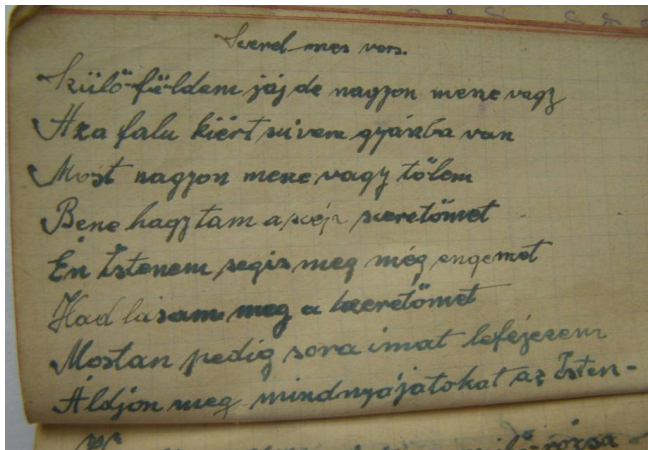 Szerelmes vers.
Szülő földem jáj de nagyon mesze vagy
Aza falu kiért szivem gyászba van
Most nagyon mesze vagy tőlem
Bene hagytam a szép szeretőmet
Én Istenem segis meg még engemet
Had lásam meg a szeretőmet
Mostan pedig soraimat lefejezem
Áldjon meg mindnyájatokat az Isten-
rózsa